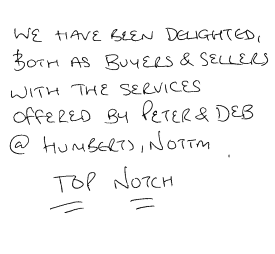 WE HAVE BEEN DELIGHTED,
BOTH AS BUYERS & SELLERS
WITH THE SERVICES
OFFERED BY PETER & DEB
@ HUMBERTS, NOTTM.
TOP NOTCH